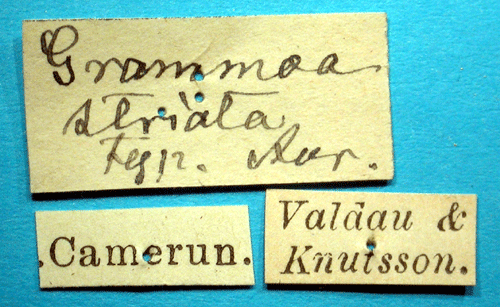 Grammoea
striata
Typ. Aur.
.Camerun.
Valdau &
Knutsson.